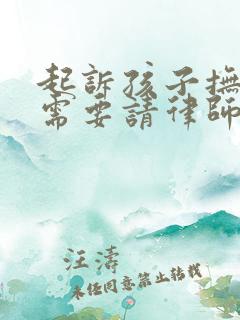 起訴孩子撫
需要請律師
汪濤
未经同意禁止转载